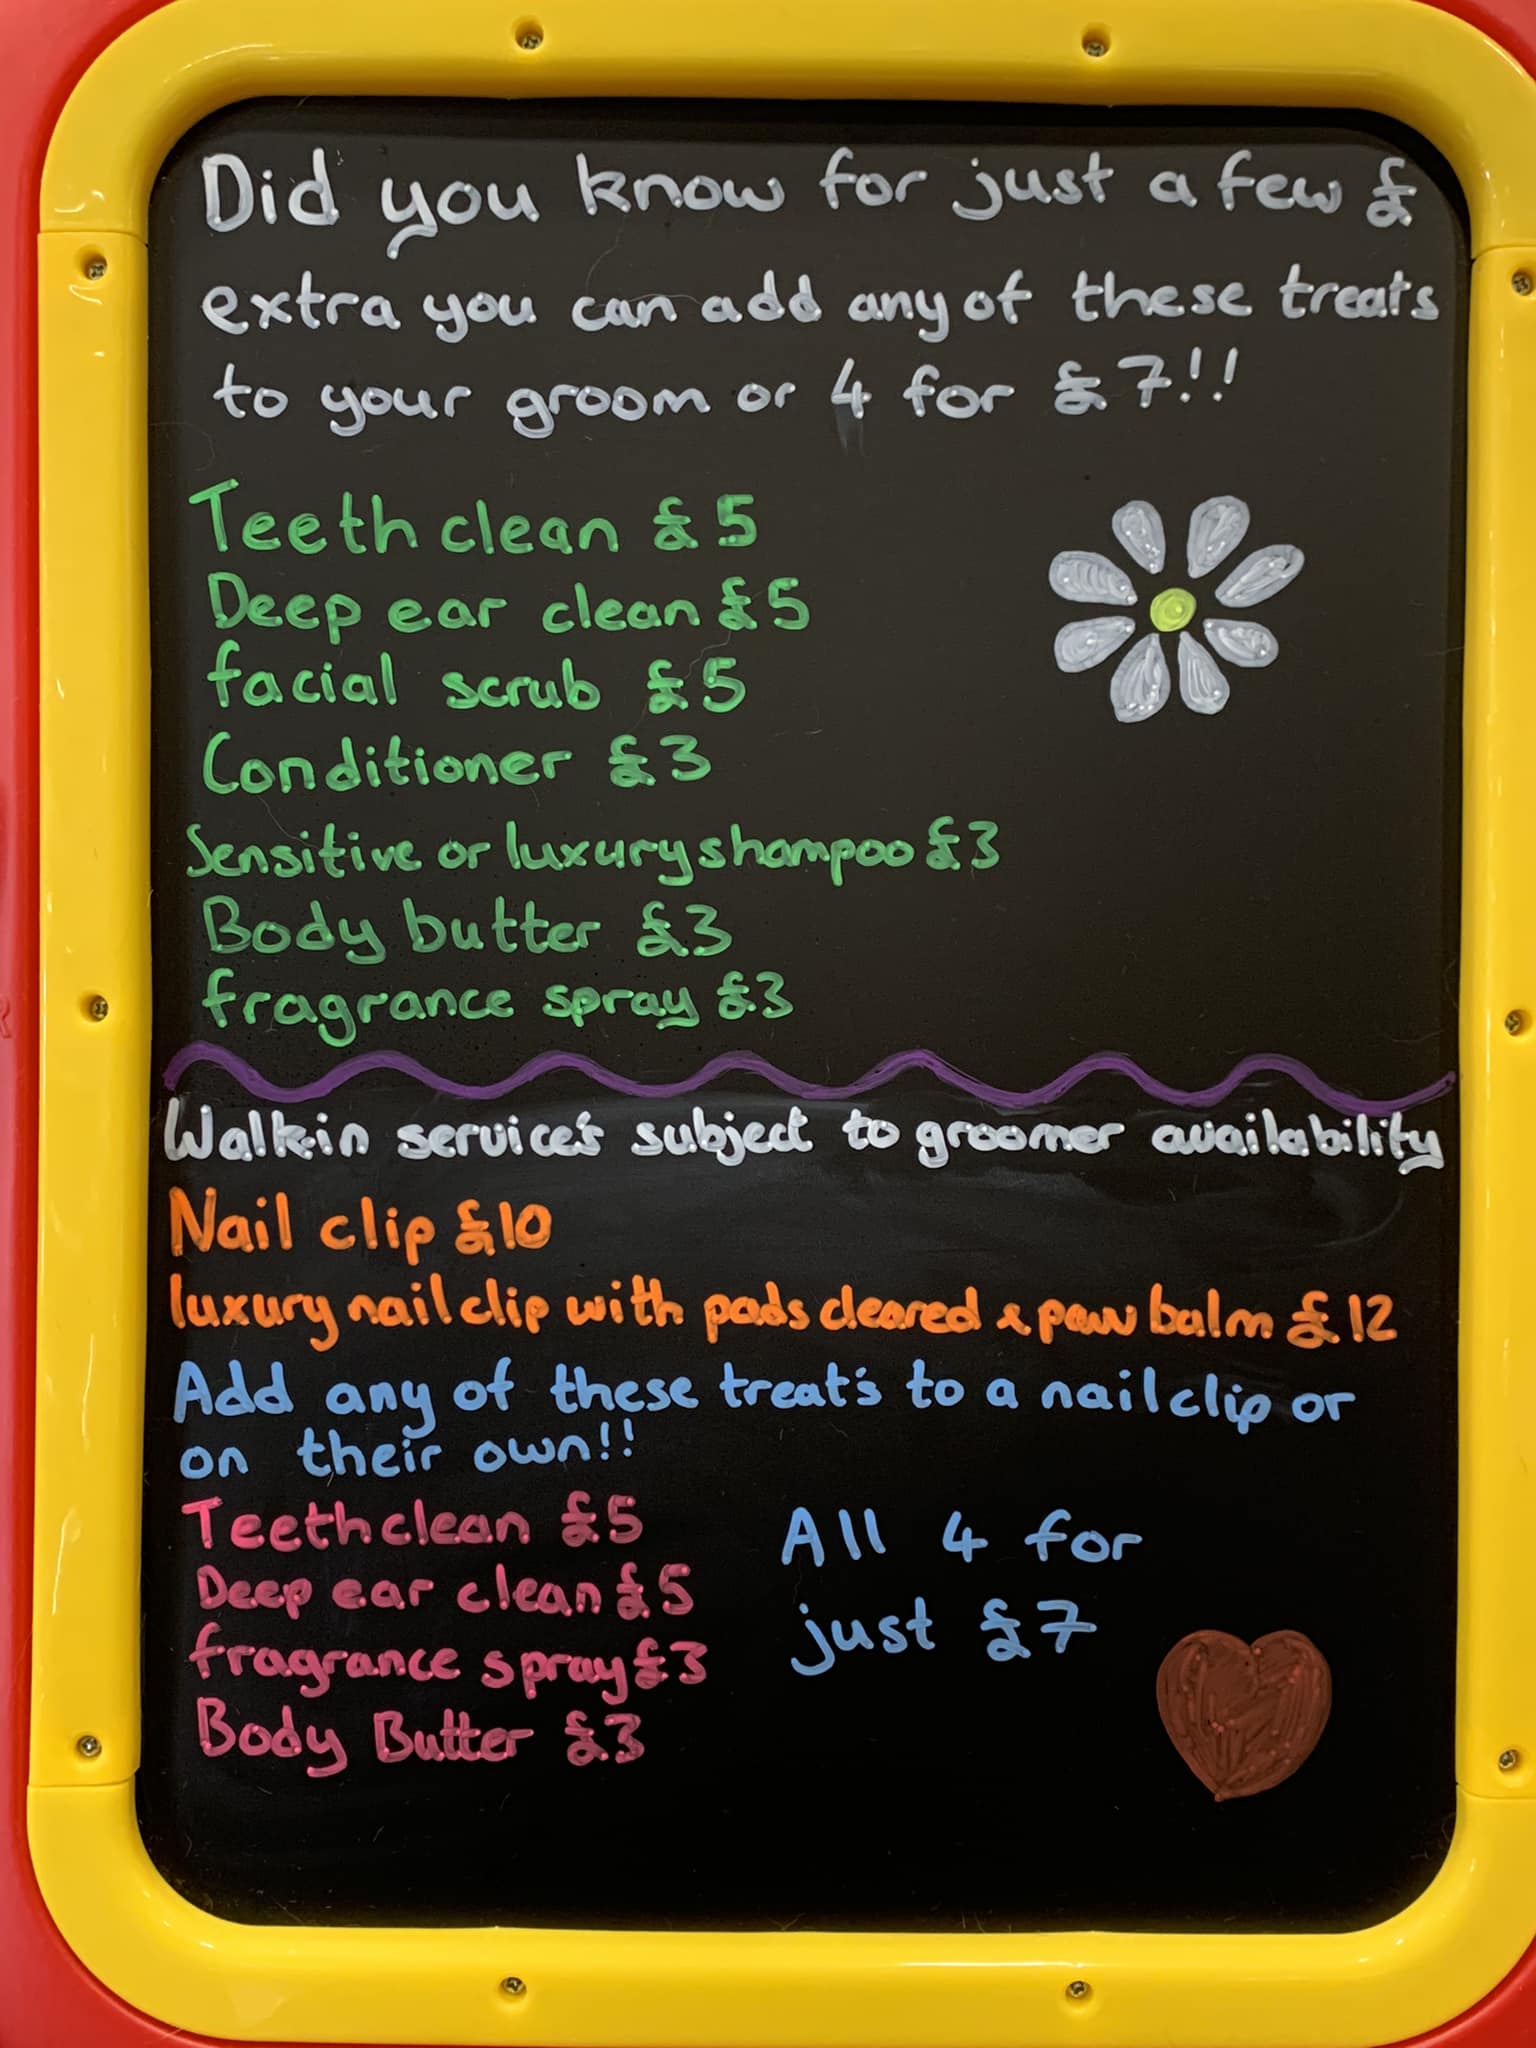 Did you know for just a few £
extra you can add any of these treats
to your groom or 4 for £7!!
Teeth clean £5
Deep ear clean £5
facial scrub £5
Conditioner £3
Sensitive or luxury shampoo £3
Body butter £3
fragrance spray £3
Walk-in service's subject to groomer availability
Nail clip £10
luxury nail clip with pads cleared & paw balm £12
Add any of these treat's to a nail clip or
on their own!!
Teeth clean £5
Deep ear clean £5
fragrance spray £3
Body Butter £3
All 4 for
just £7